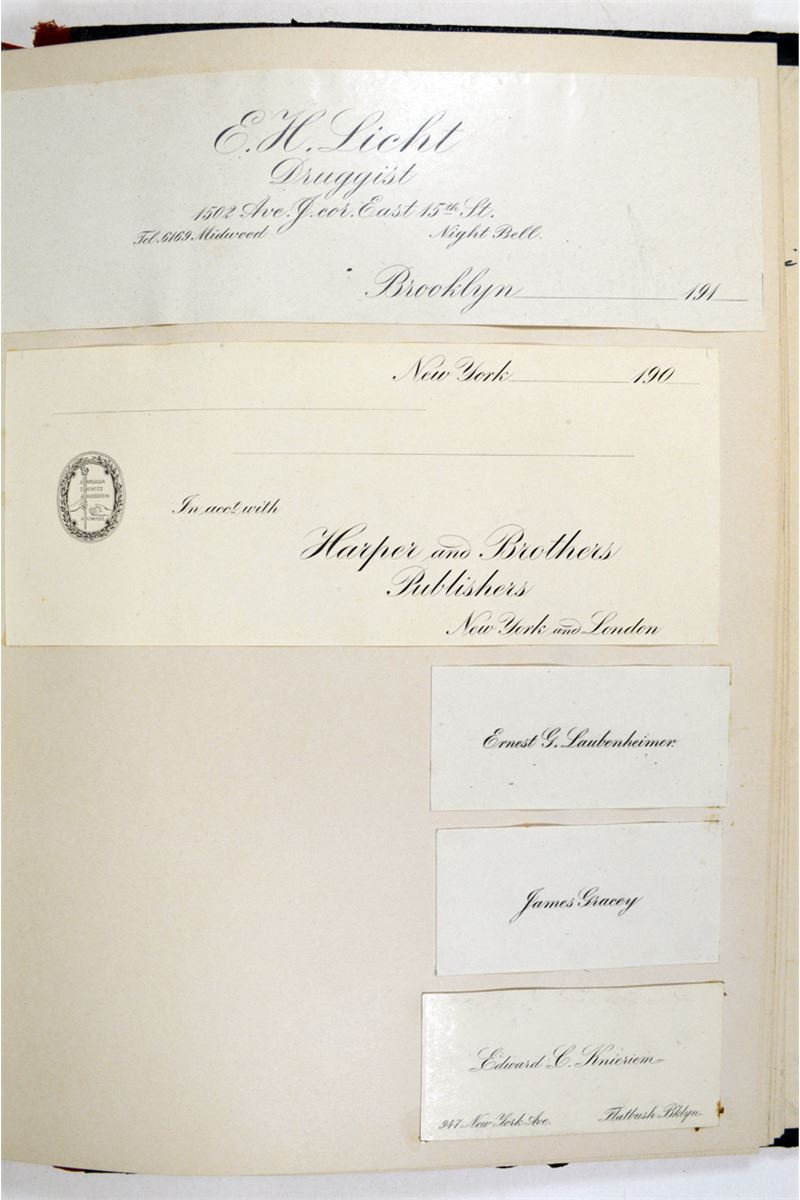 E. H. Licht
Druggist
1502 Ave. J. cor. East 15th St.
Tel. 6169 Midwood Night Bell.
Brooklyn 191
New York 190
In acct. with
Harper and Brothers
Publishers
New York and London
Ernest G. Laubenheimer.
James Gracey
Edward C. Knieriem
947 New York Ave. Flatbush Bklyn.